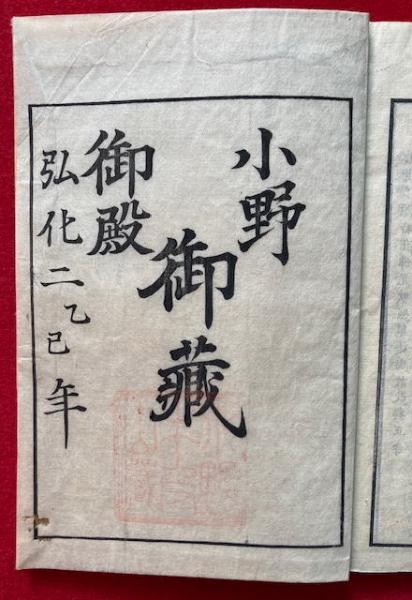 小野
御殿
御藏
弘化二乙巳年